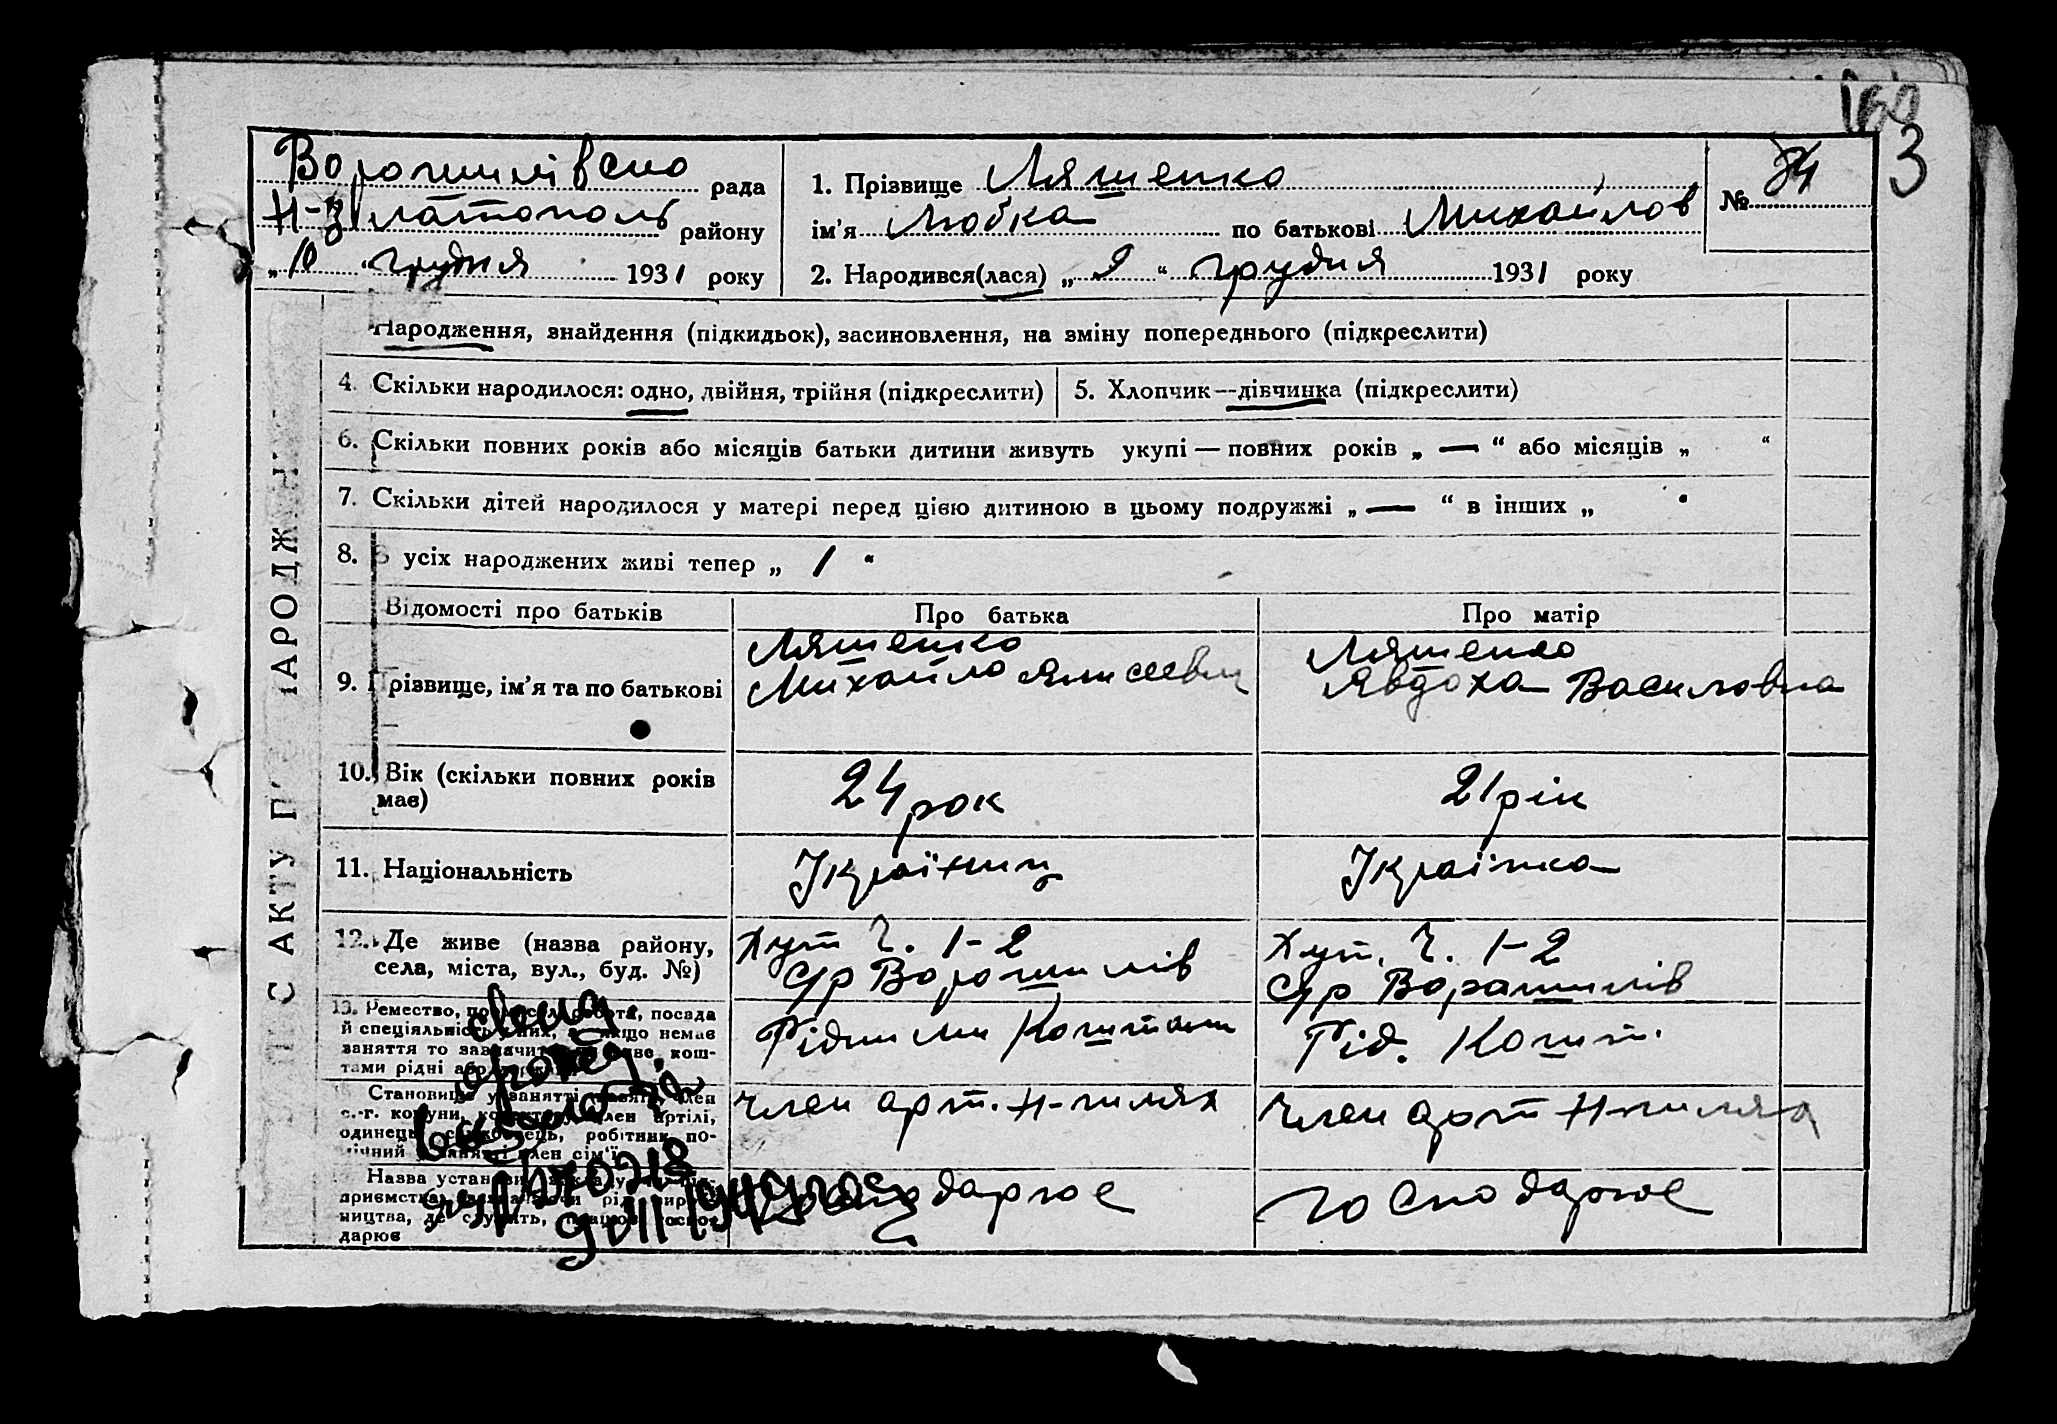 3
Ворошилівска рада
Н-Златополь району
„10“ грудня 1931 року
1. Прізвище Ляшенко
№ 84
ім'я Любка по батькові Михайлов
2. Народився(лася) „9“ грудня 1931 року
Народження, знайдення (підкидьок), засиновлення, на зміну попереднього (підкреслити)
4. Скільки народилося: одно, двійня, трійня (підкреслити)
5. Хлопчик—дівчинка (підкреслити)
6. Скільки повних років або місяців батьки дитини живуть укупі — повних років „—“ або місяців „ “
7. Скільки дітей народилося у матері перед цією дитиною в цьому подружжі „—“ в інших „ “
8. З усіх народжених живі тепер „1“
Відомості про батьків
Про батька
Про матір
9. Прізвище, ім'я та по батькові
Ляшенко
Михайло
Ляшенко
Явдоха Василовна
10. Вік (скільки повних років має)
24 рок
21 рік
11. Національність
Україниц
Українка
12. Де живе (назва району,
села, міста, вул., буд. №)
Хут Ч. 1-2
С/р Ворошилів
Хут. Ч. 1-2
С/р Ворошилів
13. Ремество, посада
й спеціяльність якщо немає
заняття то кош-
тами рідні
Рідними Коштами
Рід. Кошт.
Становище у занятті член
с.-г. комуни, член артілі,
одинець, робітник по-
член сім'ї
член арт. Н-шлях
член арт Н-шляха
Назва установи
приємства,
ництва, де служить, госпо-
дарює
господарює
господарює